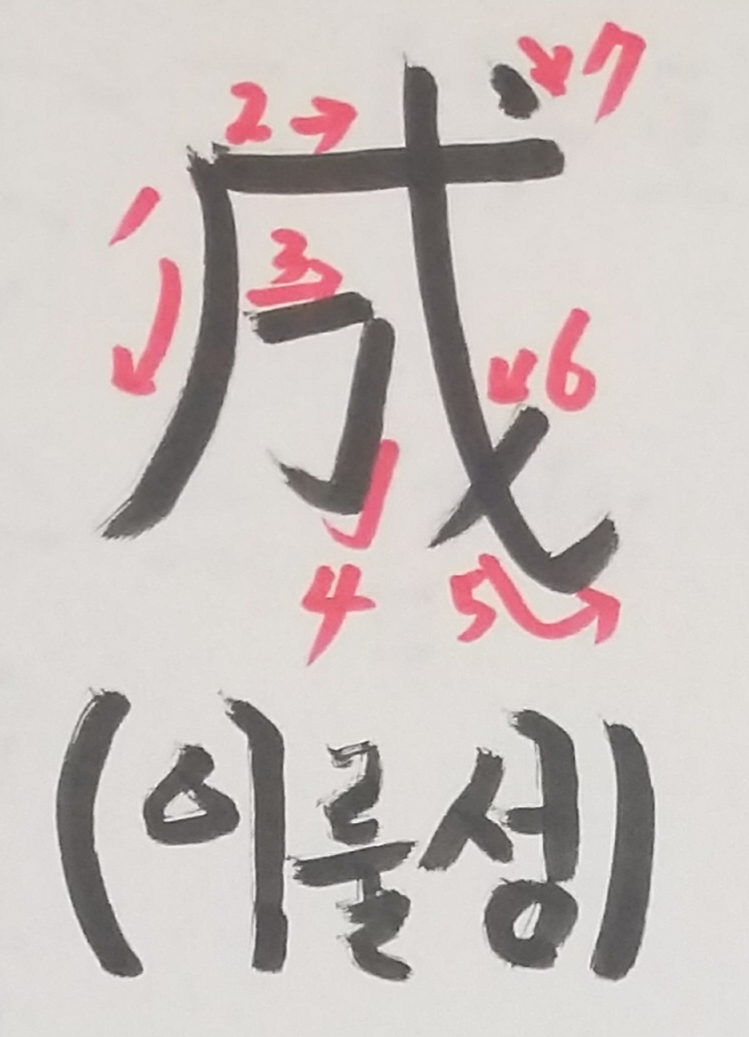 成
1 2 3 4 5 6 7
(이룰성)